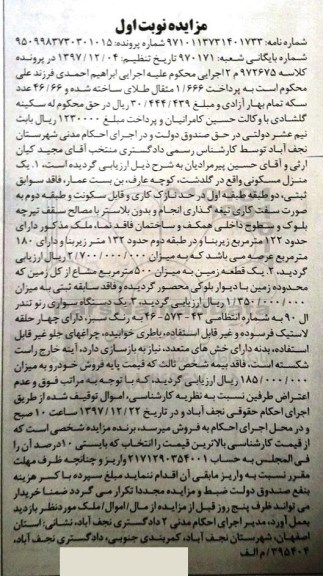 مزایده نوبت اول
شماره نامه: ۹۷۱۰۱۱۳۷۳۱۴۰۱۷۳۳ شماره پرونده: ۹۵۰۹۹۸۳۷۳۰۳۰۱۰۱۵
شماره بایگانی شعبه: ۹۷۰۱۷۱ تاریخ تنظیم: ۱۳۹۷/۱۲/۰۴ در پرونده
کلاسه ۹۷۲۶۷۵ م ۲ اجرایی محکوم علیه اجرایی ابراهیم احمدی فرزند علی
محکوم است به پرداخت ۱/۶۶۶ مثقال طلای ساخته شده و ۴۶/۶۶ عدد
سکه تمام بهار آزادی و مبلغ ۳۰/۴۴۴/۴۳۹ ریال در حق محکوم له سکینه
گلشادی با وکالت حسین کامرانیان و پرداخت مبلغ ۱۲۳۰۰۰۰ ریال بابت
نیم عشر دولتی در حق صندوق دولت و در اجرای احکام مدنی شهرستان
نجف آباد توسط کارشناس رسمی دادگستری منتخب آقای مجید کیان
ارثی و آقای حسین پیرمرادیان به شرح ذیل ارزیابی گردیده است، ۱. یک
منزل مسکونی واقع در گلدشت، کوچه عارف، بن بست عمار، فاقد سوابق
ثبتی، دو طبقه طبقه اول در حد نازک کاری و قابل سکونت و طبقه دوم به
صورت سفت کاری تیغه گذاری انجام و بدون پلاستر با مصالح سقف تیرچه
بلوک و سطوح داخلی همکف و ساختمان فاقد نما، ملک مذکور دارای
حدود ۱۲۲ مترمربع زیربنا و در طبقه دوم حدود ۱۳۲ متر زیربنا و دارای ۱۸۰
مترمربع عرصه می باشد که به میزان ۲/۷۰۰/۰۰۰/۰۰۰ ریال ارزیابی
گردید، ۲. یک قطعه زمین به میزان ۵۰۰ مترمربع مشاع از کل زمین که
محدوده زمین با دیوار بلوکی محصور گردیده و فاقد سابقه ثبتی به میزان
۱/۳۵۰/۰۰۰/۰۰۰ ریال ارزیابی گردید، ۳. یک دستگاه سواری رنو تندر
ال ۹۰ به شماره انتظامی ۴۲-۵۷۳-۴۶ به رنگ سبز، دارای چهار حلقه
لاستیک فرسوده و غیر قابل استفاده، باطری خوابیده، چراغهای جلو غیر قابل
استفاده، بدنه دارای خش های متعدد، نیاز به بازسازی دارد، آینه خارج راست
شکسته است، فاقد بیمه شخص ثالث که قیمت پایه فروش خودرو به میزان
۱۸۵/۰۰۰/۰۰۰ ریال ارزیابی گردید، که با توجه به مراتب فوق و عدم
اعتراض طرفین نسبت به نظریه کارشناسی، اموال توقیف شده از طریق
اجرای احکام حقوقی نجف آباد و در تاریخ ۱۳۹۷/۱۲/۲۲ ساعت ۱۰ صبح
و در محل اجرای احکام به فروش میرسد، برنده مزایده شخصی است که
از قیمت کارشناسی بالاترین قیمت را انتخاب که بایستی ۱۰درصد آن را
فی المجلس به حساب ۲۱۷۱۲۹۰۳۵۴۰۰۱ واریز و چنانچه ظرف مهلت
مقرر نسبت به واریز مابقی آن اقدام ننماید مبلغ سپرده با کسر هزینه
بنفع صندوق دولت ضبط و مزایده مجددا تکرار می گردد ضمنا خریدار
می تواند ظرف پنج روز قبل از مزایده از مال/اموال/ملک مورد نظر بازدید
بعمل آورد، مدیر اجرای احکام مدنی ۲ دادگستری نجف آباد، نشانی: استان
اصفهان، شهرستان نجف آباد، کمربندی جنوبی، دادگستری نجف آباد،
۳۹۵۴۰۴/ م الف